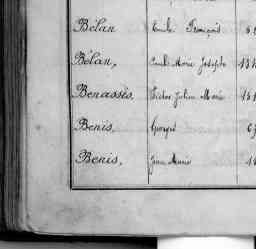 Bélan Emile François
Bélan, Paul Marie Joseph
Benassés, Victor Julien Marie
Benis, Georges
Benis, Jean Marie